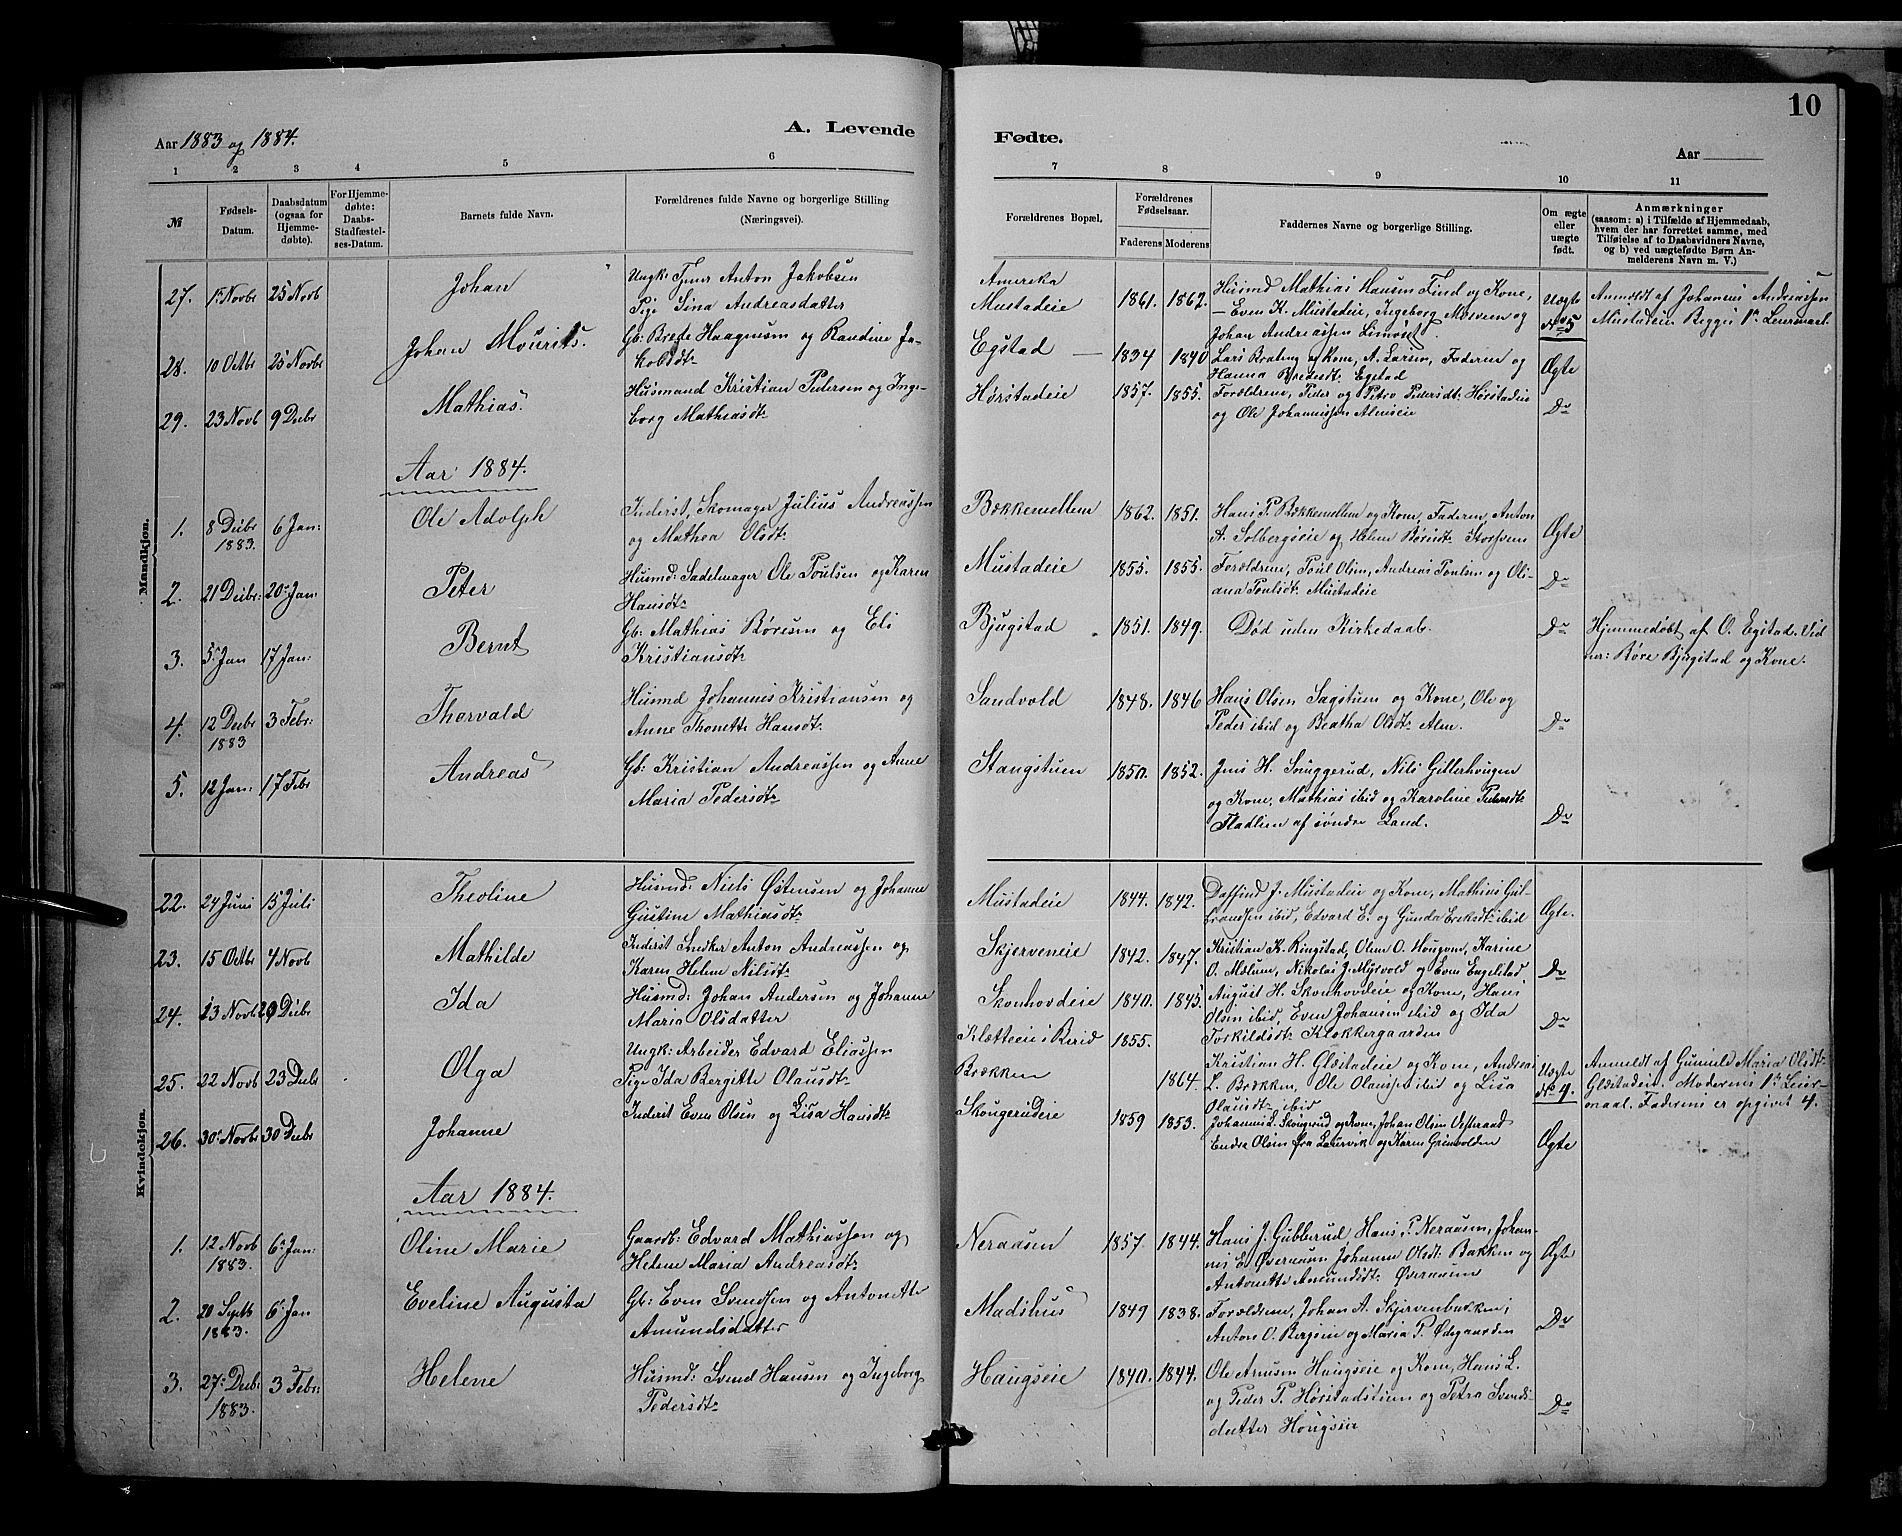 10
Aar 1883 og 1884.
A. Levende
Fødte.
Aar
1 2 3 4 5 6 7 8 9 10 11
№
Fødsels-
Datum.
Daabsdatum
(ogsaa for
Hjemme-
døbte).
For Hjemme-
døbte:
Daabs-
Stadfæstel-
ses-Datum.
Barnets fulde Navn.
Forældrenes fulde Navne og borgerlige Stilling
(Næringsvei).
Forældrenes Bopæl.
Forældrenes
Fødselsaar.
Faderens
Moderens
Faddernes Navne og borgerlige Stilling.
Om ægte
eller
uægte
født.
Anmærkninger
(saasom: a) i Tilfælde af Hjemmedaab,
hvem der har forrettet samme, med
Tilføielse af to Daabsvidners Navne,
og b) ved uægtefødte Børn An-
melderens Navn m. V.)
Mandkjøn.
27. 1ste Novbr 25 Novb Johan
Ungk: Tjener Anton Jakobsen
Pige Sina Andreasdatter
Amerika
Mustadeie
1861. 1862.
Husmd Mathias Hansen Find og Kone,
Even K. Mustadeie, Ingeborg Mosveen og
Johan Andreassen Limoset.
Uægte
No 5
Anmeldt af Johannes Andreassen
Mustadeie Begges 1ste Leiermaal.
28. 10 Octbr 25 Novbr Johan Mourits.
Gb: Brede Haagensen og Randine Ja-
kobsdt:
Egstad
1834 1840
Lars Brateng og Kone, A. Larsen, Faderen og
Hanna Bredesdt: Egstad
Ægte
29. 23 Novb 9 Decbr Mathias.
Husmand Kristian Pedersen og Inge-
borg Mathiasdt:
Hørstadeie
1857. 1855.
Forældrene, Peder og Petra Pedersdt: Hørstadeie
og Ole Johannessen Alméie
Do
Aar 1884.
1. 8 Decbr 1883. 6 Jan: Ole Adolph
Inderst, Skomager Julius Andreassen
og Mathea Olsdt:
Bækkemellem
1862. 1851.
Hans P. Bækkemellem og Kone, Faderen, Anton
A. Solbergseie og Helene Børesdt:
Ægte
2. 21 Decbr: 20 Jan: Peter
Husmd: Sadelmager Ole Poulsen og Karen
Hansdt:
Mustadeie
1855. 1855.
Forældrene, Poul Olsen, Andreas Poulsen og Oli-
ana Poulsdt: Mustadeie
Do
3. 5 Jan 17 Jan: Bernt
Gb: Mathias Børesen og Eli
Kristiansdt:
Bjugstad
1851. 1849.
Død uden Kirkedaab.
Do
Hjemmedøbt af O. Egstad. Vid
ner: Børe Bjugstad og Kone.
4. 12 Decbr 1883 3 Febr: Thorvald
Husmd Johannes Kristiansen og
Anne Thonette Hansdt:
Sandvold
1848. 1846
Hans Olsen Sagstuen og Kone, Ole og
Peder ibid og Beatha Olsdt: Alm.
Do
5. 12 Jan: 17 Febr Andreas
Gb: Kristian Andreassen og Anne
Maria Pedersdt:
Stangstuen
1850. 1852.
Jens H. Snuggerud, Nils Gillerhaugen
og Kone, Mathias ibid og Karoline Pedersdt:
Fladlien af søndre Land.
Do
Kvindekjøn.
22. 24 Juni 15 Juli Theoline
Husmd: Niels Østensen og Johanne
Gustine Mathiasdt:
Mustadeie
1844. 1842.
Dagfind J. Mustadeie og Kone, Mathias Gul-
brandsen ibid, Edvard E. og Gunda Eriksdt: ibid
Ægte.
23. 15 Octbr 4 Novb Mathilde
Inderst Snedker Anton Andreassen og
Karen Helene Nilsdt:
Skjerveneie
1842. 1847.
Kristian K. Ringstad, Olea O. Hougen, Karine
O. Mælum, Nikolai J. Myrvold og Even Engelstad
Do
24. 13 Novb 29 Decbr Ida
Husmd: Johan Andersen og Johanne
Maria Olsdatter
Skonhovdeie
1840. 1845
August H. Skonhovdeie og Kone, Hans
Olsen ibid, Even Johansen ibid og Ida
Torkildsdt: Klokkergaarden
Do
25. 22 Novb 23 Decbr Olga
Ungk: Arbeider Edvard Eliassen
Pige Ida Bergitte Olausdt:
Klætteeie i Berid
Brækken
1855.
1864.
Kristian H. Glæstadeie og Kone, Andreas
L. Brækken, Ole Olaussen ibid og Lisa
Olausdt: ibid
Uægte
No 4.
Anmeldt af Gunild Maria Olsdt:
Glæstadeie. Moderens 1ste Leier-
maal. Faderens er opgivet 4.
26. 30 Novbr 30 Decbr Johanne
Inderst Even Olsen og Lisa Hansdt:
Skougerudeie
1859 1853.
Johannes L. Skougerud og Kone, Johan Olsen Østraad
Endre Olsen fra Laurvik og Karen Grimvolden
Ægte
Aar 1884.
1. 12 Novb 1883. 6 Jan: Oline Marie
Gaardb: Edvard Mathiassen og
Helene Maria Andreasdt:
Neraasen
1857. 1844.
Hans J. Gubberud, Hans P. Neraasen, Johan-
nes E. Øveraasen Johanne Olsdt: Bakken og
Antonette Amundsdt: Øveraasen
Ægte
2. 20 Septb 1883. 6 Jan Eveline Augusta
Gb: Even Svendsen og Antonette
Amundsdatter
Madshus
1849 1838.
Forældrene, Johan A. Skjervenbakken,
Anton O. Bergseie og Maria P. Ødegaarden
Do
3. 27 Decb: 1883. 3 Febr: Helene
Husmd: Svend Hansen og Ingeborg
Pedersdt:
Haugseie
1840. 1844.
Ole Arnesen Haugseie og Kone, Hans L.
og Peder P. Hørstadstuen og Petra Svends-
datter Hougseie
Do